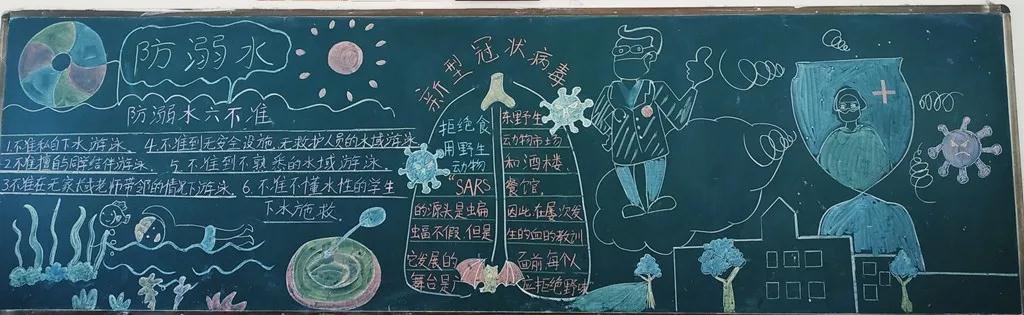 防溺水
防溺水六不准
1.不准私自下水游泳、 4.不准到无安全设施、无救护人员的水域游泳
2.不准擅自同学结伴游泳、 5.不准到不熟悉的水域游泳
3.不准在无家长或老师带邻的情况下游泳、6.不准不懂水性的学生
下水施救、
新型冠状病毒
拒绝食
用野生
动物
"SARS
的源头是蝙
蝠不假,但是
它发展的
舞台是
东里野生
动物市场
和酒楼、
餐馆、
因此,在屡次发
生的血的教训
面前,每个人
应拒绝野味